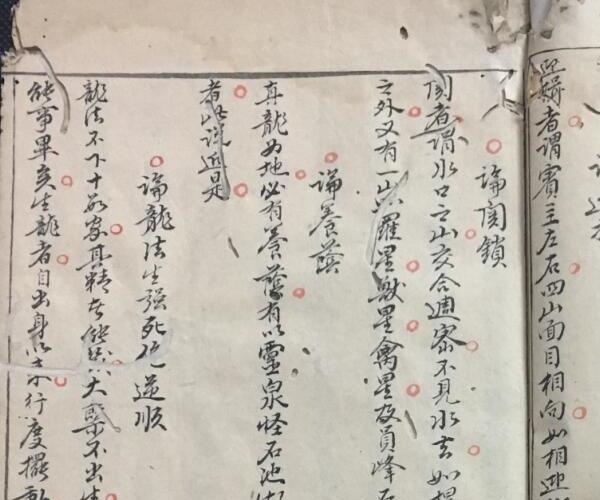 迎輯者謂賓主左右四山面目相向如相迎
論関鎖
関者謂水口之山交合週密不見水去如
之外又有一山以羅星獸星禽星及員峰石
論養蔭
真龍好地必有養蔭有以靈泉怪石池
者此說近是
論龍法生强死絕逆順
龍法不下十數家其精者能然大槩不出生
能事畢矣生龍者自出身以来行度擺動